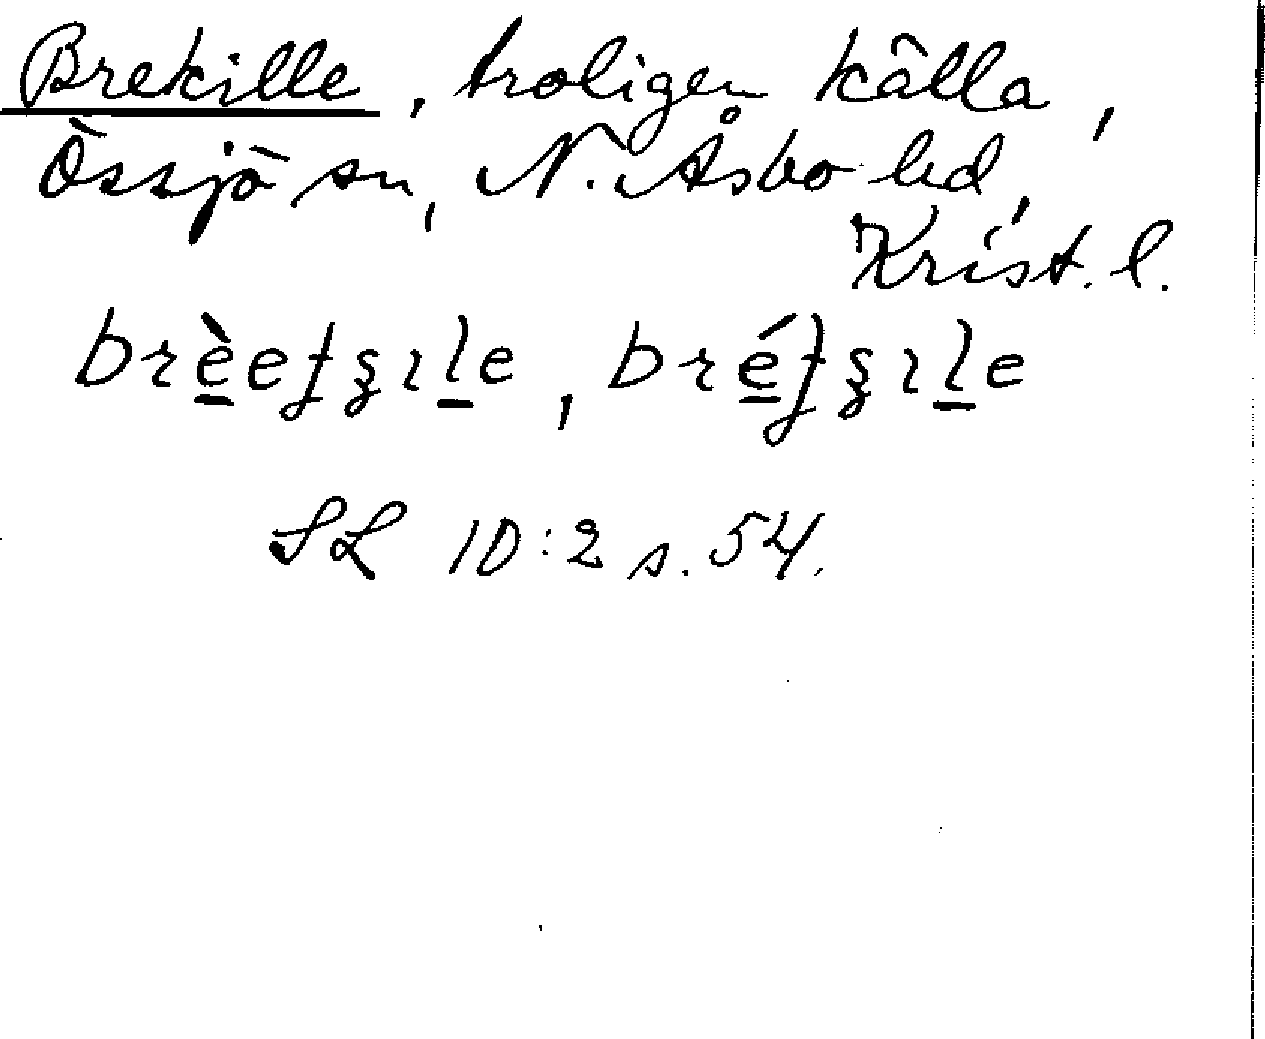 Brekille, troligen källa,
Össjö sn, N. Åsbo hd,
Krist. l.
brè̱eʄʂɩḻe, bré̱ʄʂɩḻe
SL 10:2 s. 54.